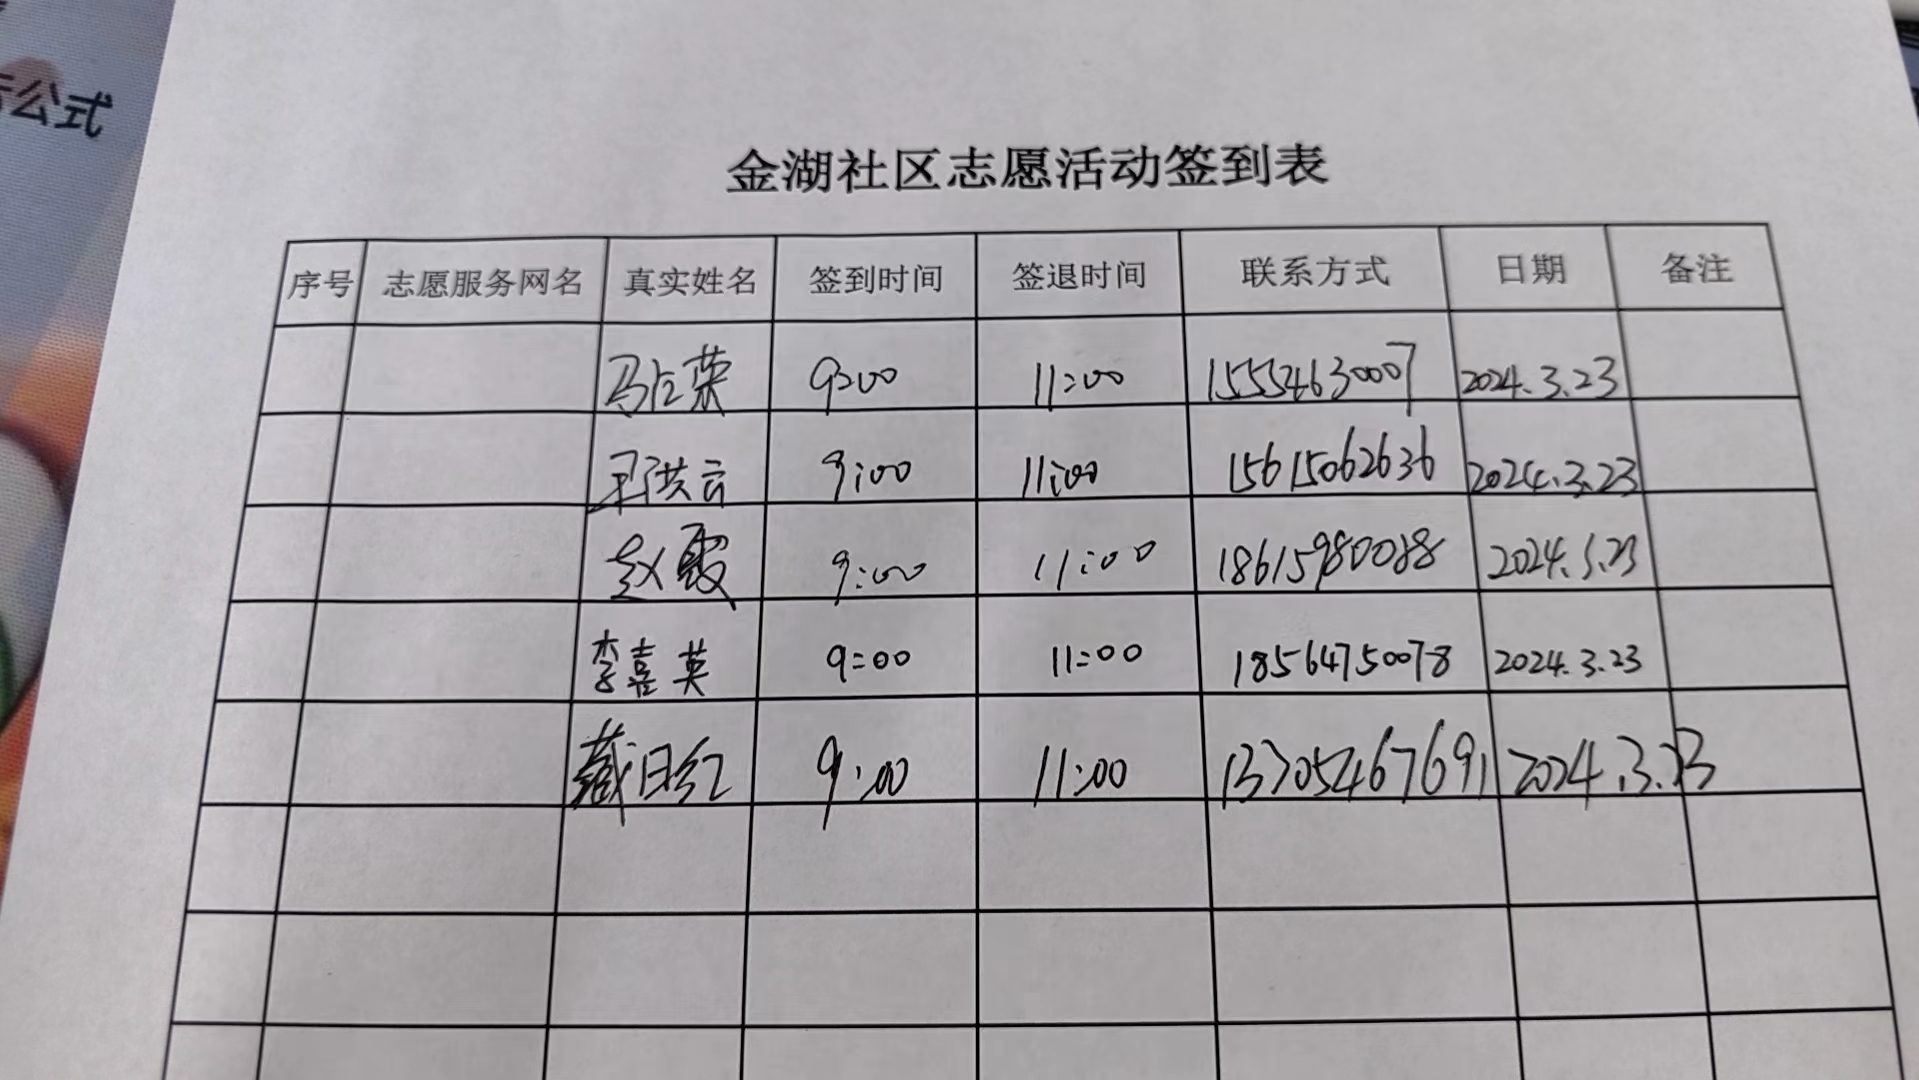 公式
金湖社区志愿活动签到表
序号 志愿服务网名 真实姓名 签到时间 签退时间 联系方式 日期 备注
马占荣 9:00 11:00 15554630007 2024.3.23
洪云 9:00 11:00 15615062636 2024.3.23
赵霞 9:00 11:00 18615980088 2024.3.23
李喜英 9:00 11:00 18564750078 2024.3.23
日红 9:00 11:00 13705467691 2024.3.23